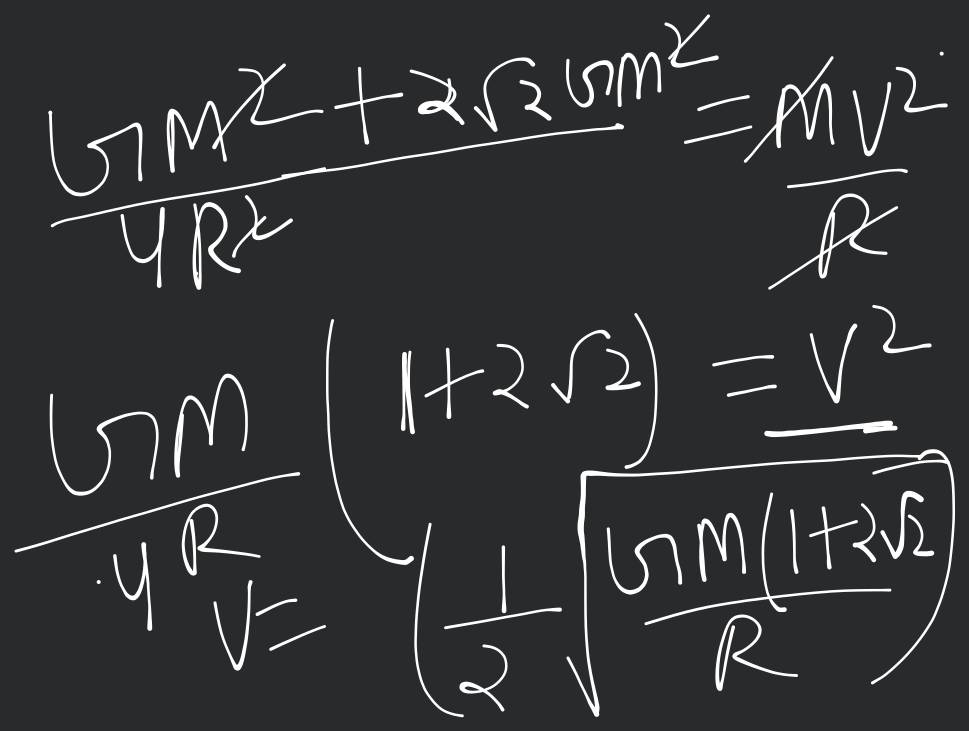 (GM² + 2√2 GM²) / 4R² = MV² / R
GM / 4R (1+2√2) = V²
V = (1/2 √(GM(1+2√2 / R))